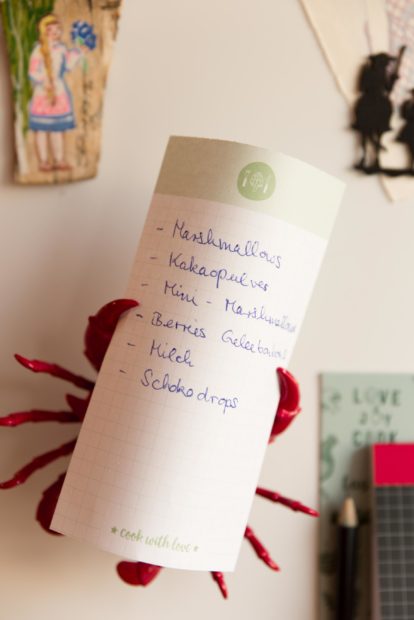 - Marshmallows
- Kakaopulver
- Mini - Marshmallows
- Berries
- Milch
- Schokodrops
* cook with love *
LOVE
JOY
COOK